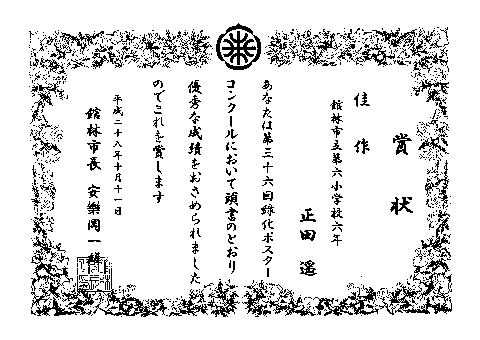 賞状
佳作
館林市立第六小学校六年
正田遥
あなたは第三十六回緑化ポスター
コンクールにおいて頭書のとおり
優秀な成績をおさめられました
のでこれを賞します
平成二十八年十月十一日
館林市長 安樂岡一雄